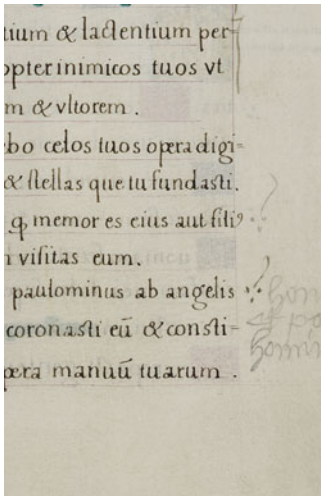 tium & lactentium per-
opter inimicos tuos vt
m & vltorem .
bo celos tuos opera digi-
& stellas que tu fundasti.
ꝙ memor es eius aut filiꝰ
i visitas eum.
paulominus ab angelis
coronasti eū & consti-
pera manuū tuarum .